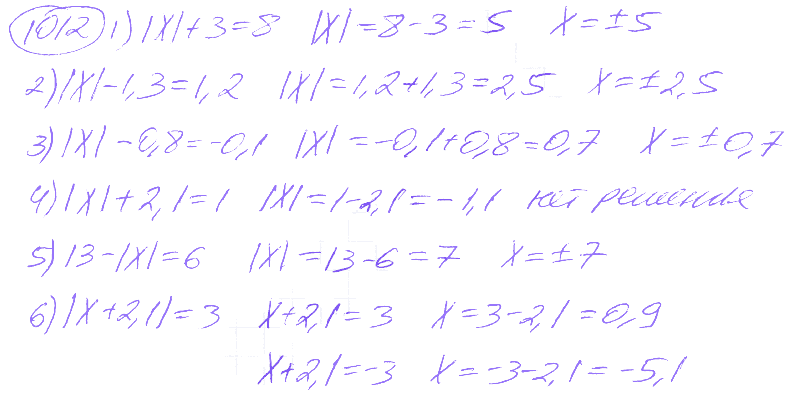 1012 1) |X|+3=8 |X|=8-3=5 X=±5
2) |X|-1,3=1,2 |X|=1,2+1,3=2,5 X=±2,5
3) |X|-0,8=-0,1 |X|=-0,1+0,8=0,7 X=±0,7
4) |X|+2,1=1 |X|=1-2,1=-1,1 нет решения
5) 13-|X|=6 |X|=13-6=7 X=±7
6) |X+2,1|=3 X+2,1=3 X=3-2,1=0,9
X+2,1=-3 X=-3-2,1=-5,1